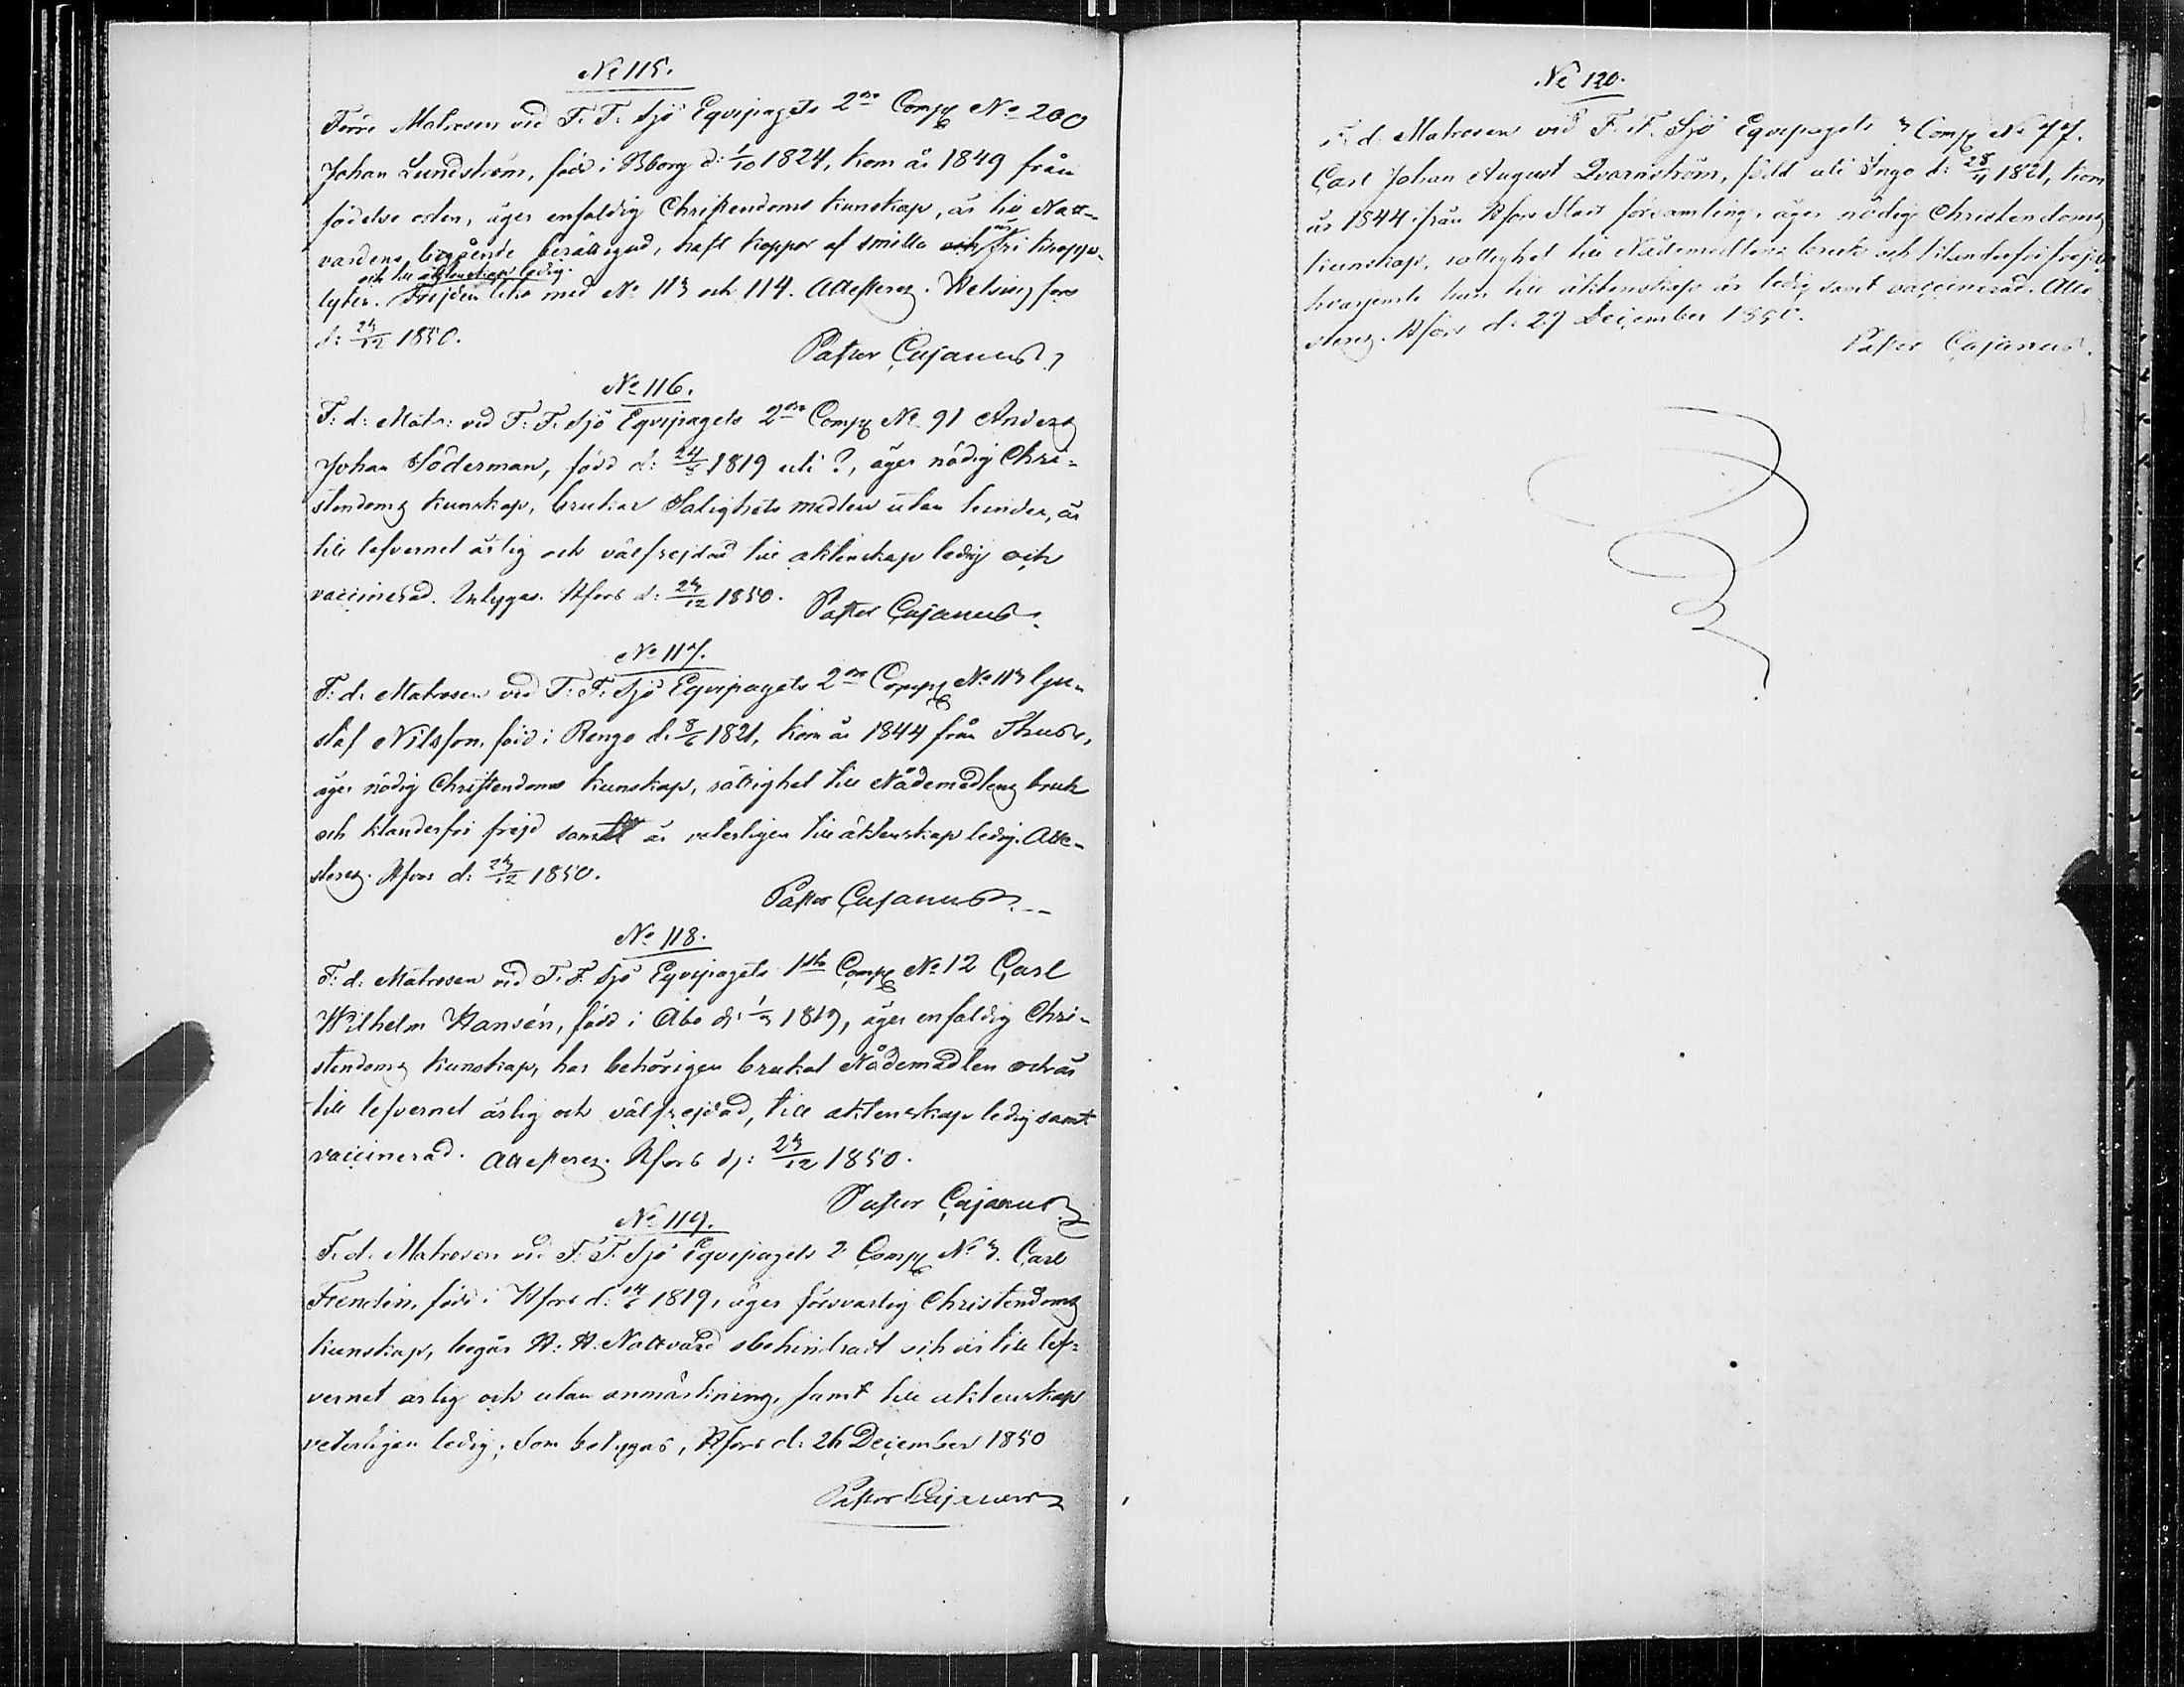 No 115.
Förre Matrosen vid F. F. Sjö Equipagets 2dra Comp No 200
Johan Lundström, född i Bborg d: 1/10 1824, kom år 1849 från
födelse orten, äger enfaldig Christendoms kunskap, är till Natt-
vardens begående berättigad, haft koppor af smitta och är fri kropps-
och till äktenskap ledig.
lyten. Frejden lika med No 113 och 114. Attesteras. Helsingfors
d: 23/12 1850.
Pastor Cajanus
No 116.
F: d: Matr: vid F: F. Sjö Equipagets 2dra Comp No 91 Anders
Johan Söderman, född d: 24/5 1819 uti ?, äger nödig Chri-
stendoms kunskap, brukar Salighets medlen utan hinder, är
till lefvernet ärlig och välfrejdad till äktenskap ledig och
vaccinerad. Intygas. Hfors d: 23/12 1850.
Pastor Cajanus
No 117.
F: d: Matrosen vid F: F. Sjö Equipagets 2dra Comp No 113 Gu-
staf Nilsson, född i Rengo d. 8/6 1821, kom år 1844 från Thus,
äger nödig Christendoms kunskap, rättighet till Nådemedlens bruk
och klanderfri frejd samt är veterligen till äktenskap ledig. Atte-
steras. Hfors d: 23/12 1850.
Pastor Cajanus
No 118.
F: d: Matrosen vid F. F. Sjö Equipagets 1sta Comp No 12 Carl
Wilhelm Hansén, född i Åbo d: 1/3 1819, äger enfaldig Chri-
stendoms kunskap, har behörigen brukat Nådemedlen och är
till lefvernet ärlig och välfrejdad, till äktenskap ledig samt
vaccinerad. Attesteras. Hfors d: 23/12 1850.
Pastor Cajanus
No 119.
F. d. Matrosen vid F. F. Sjö Equipagets 2 Comp No 3. Carl
Frendin, född i Hfors d: 14/6 1819, äger försvarlig Christendoms
kunskap, begår H. H. Nattvard obehindradt och är till lef-
vernet ärlig och utan anmärkning, samt till äktenskap
veterligen ledig; Som betygas, Hfors d: 26 December 1850
Pastor Cajanus
No 120.
F. d. Matrosen vid F. F. Sjö Equipagets 3 Comp No 77.
Carl Johan August Qvarnström, född uti Ingo d: 28/4 1821, kom
år 1844 från Hfors Stads församling, äger nödig Christendoms
kunskap, rättighet till Nådemedlens bruk och klanderfri frejd
hvarjemte han till äktenskap är ledig samt vaccinerad. Atte-
steras. Hfors d: 27 December 1850.
Pastor Cajanus.